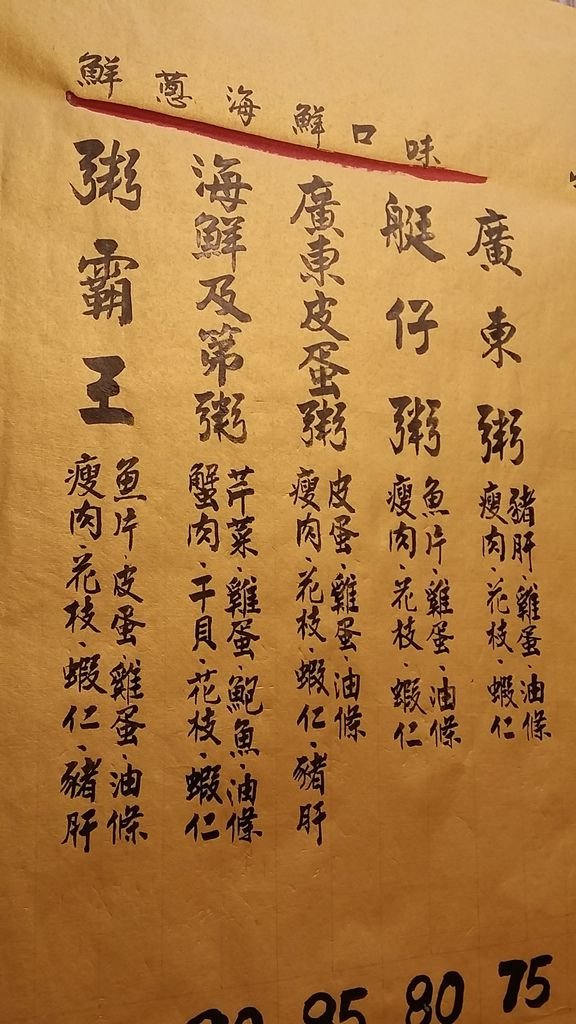 鮮蔥海鮮口味
廣東粥
豬肝、雞蛋、油條
瘦肉、花枝、蝦仁
75
艇仔粥
魚片、雞蛋、油條
瘦肉、花枝、蝦仁
80
廣東皮蛋粥
皮蛋、雞蛋、油條
瘦肉、花枝、蝦仁、豬肝
海鮮及第粥
芹菜、雞蛋、鮑魚、油條
蟹肉、干貝、花枝、蝦仁
粥霸王
魚片、皮蛋、雞蛋、油條
瘦肉、花枝、蝦仁、豬肝